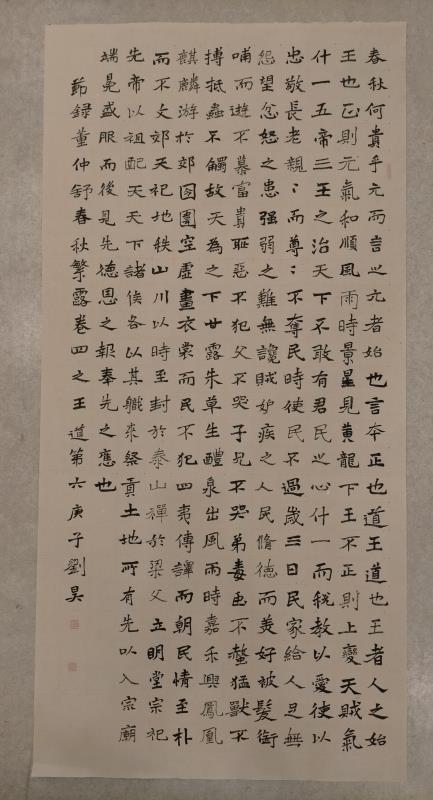 春秋何貴乎元而言之元者始也言本正也道王道也王者人之始
王也正則元氣和順風雨時景星見黃龍下王不正則上變天賊氣
什一五帝三王之治天下不敢有君民之心什一而稅教以愛使以
忠敬長老親〻而尊〻不奪民時使民不過歲三日民家給人足無
怨望忿怒之患强弱之難無讒賊妒疾之人民脩德而美好被髮銜
哺而遊不慕富貴恥惡不犯父不哭子兄不哭弟毒虫不螫猛獸不
搏抵蟲不觸故天為之下甘露朱草生醴泉出風雨時嘉禾興鳳凰
麒麟游於郊囹圄空虛畫衣裳而民不犯四夷傳譯而朝民情至朴
而不文郊天祀地秩山川以時至封於泰山禪於梁父立明堂宗祀
先帝以祖配天天下諸侯各以其職來祭貢土地所有先以入宗廟
端冕盛服而後見先德恩之報奉先之應也
節録董仲舒春秋繁露卷四之王道第六庚子劉昊